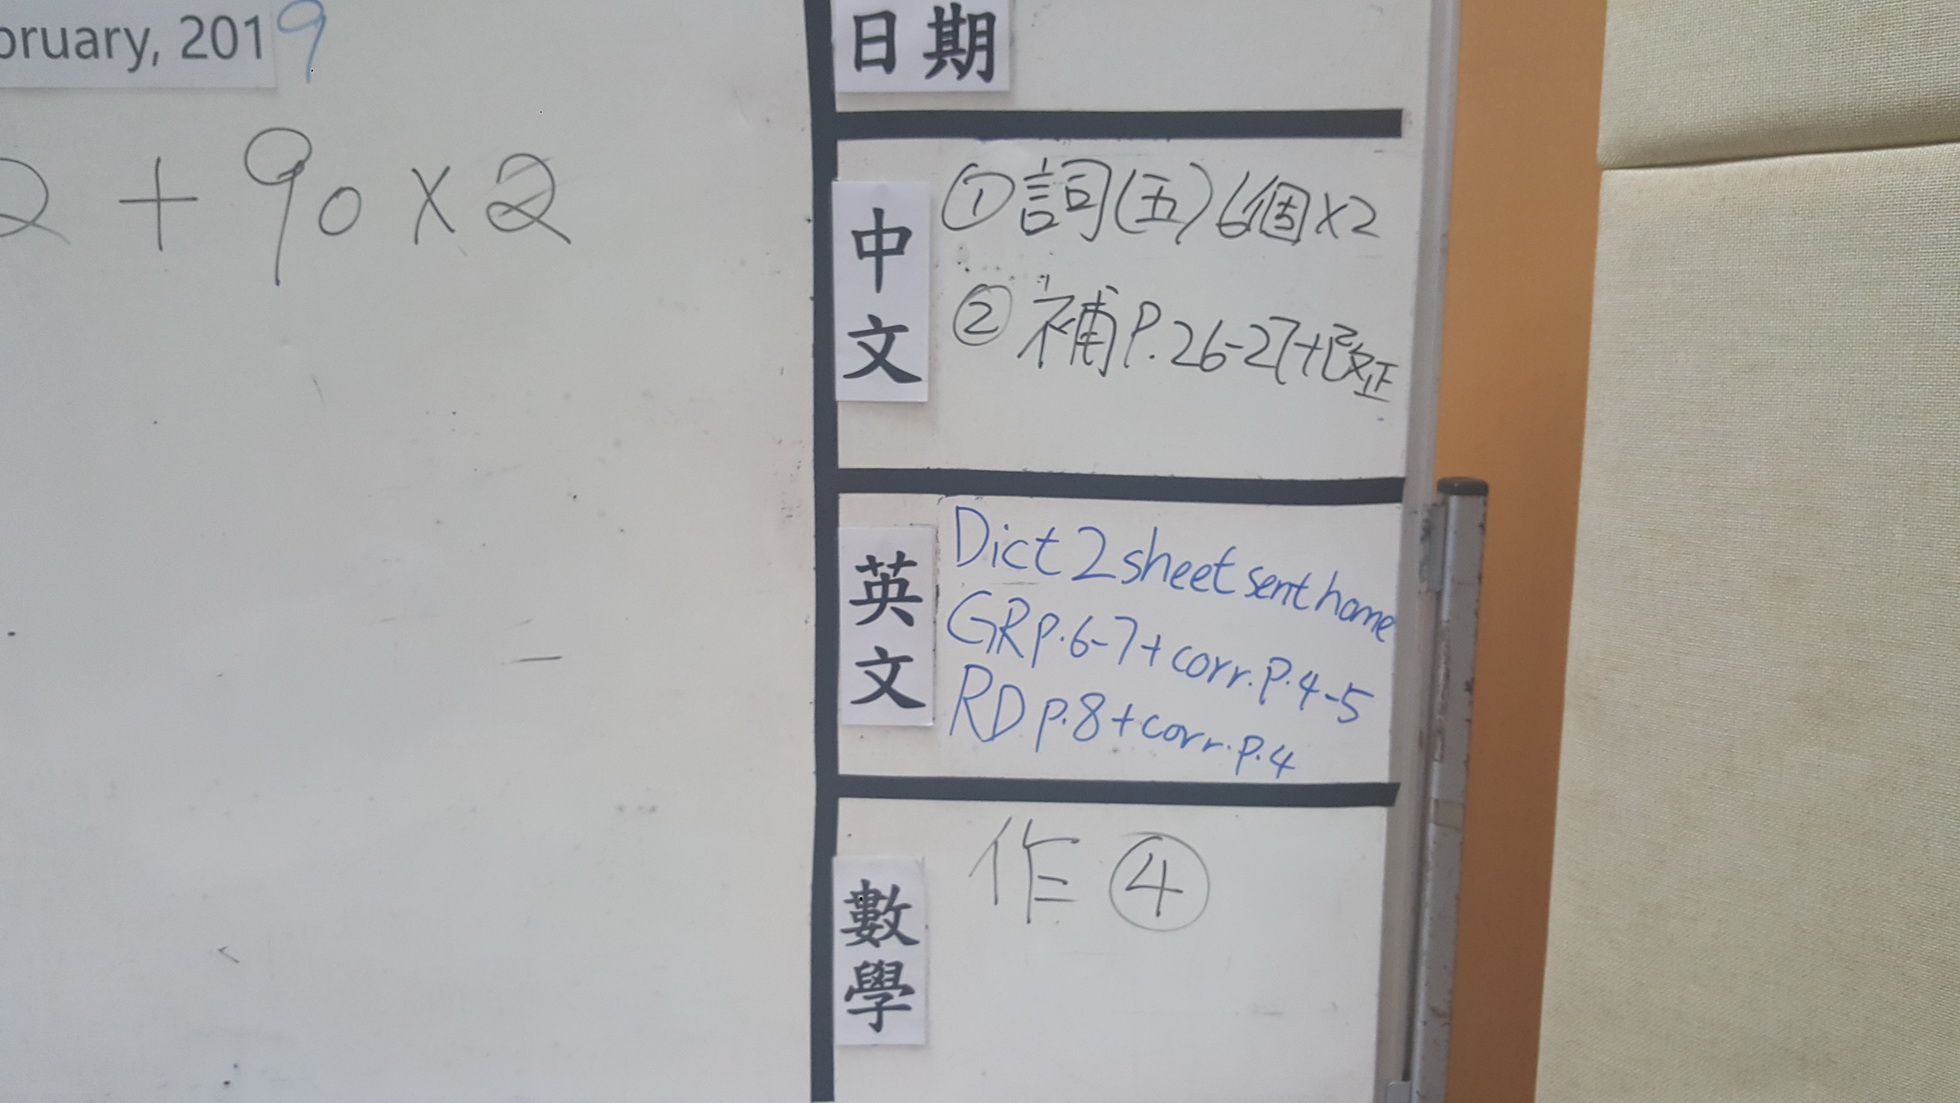 bruary, 2019
2 + 90 x 2
日期
中文
① 詞(五) 6個x2
② 補P.26-27+改正
英文
Dict 2 sheet sent home
GR p.6-7 + corr. p.4-5
RD p.8 + corr. p.4
數學
作 ④